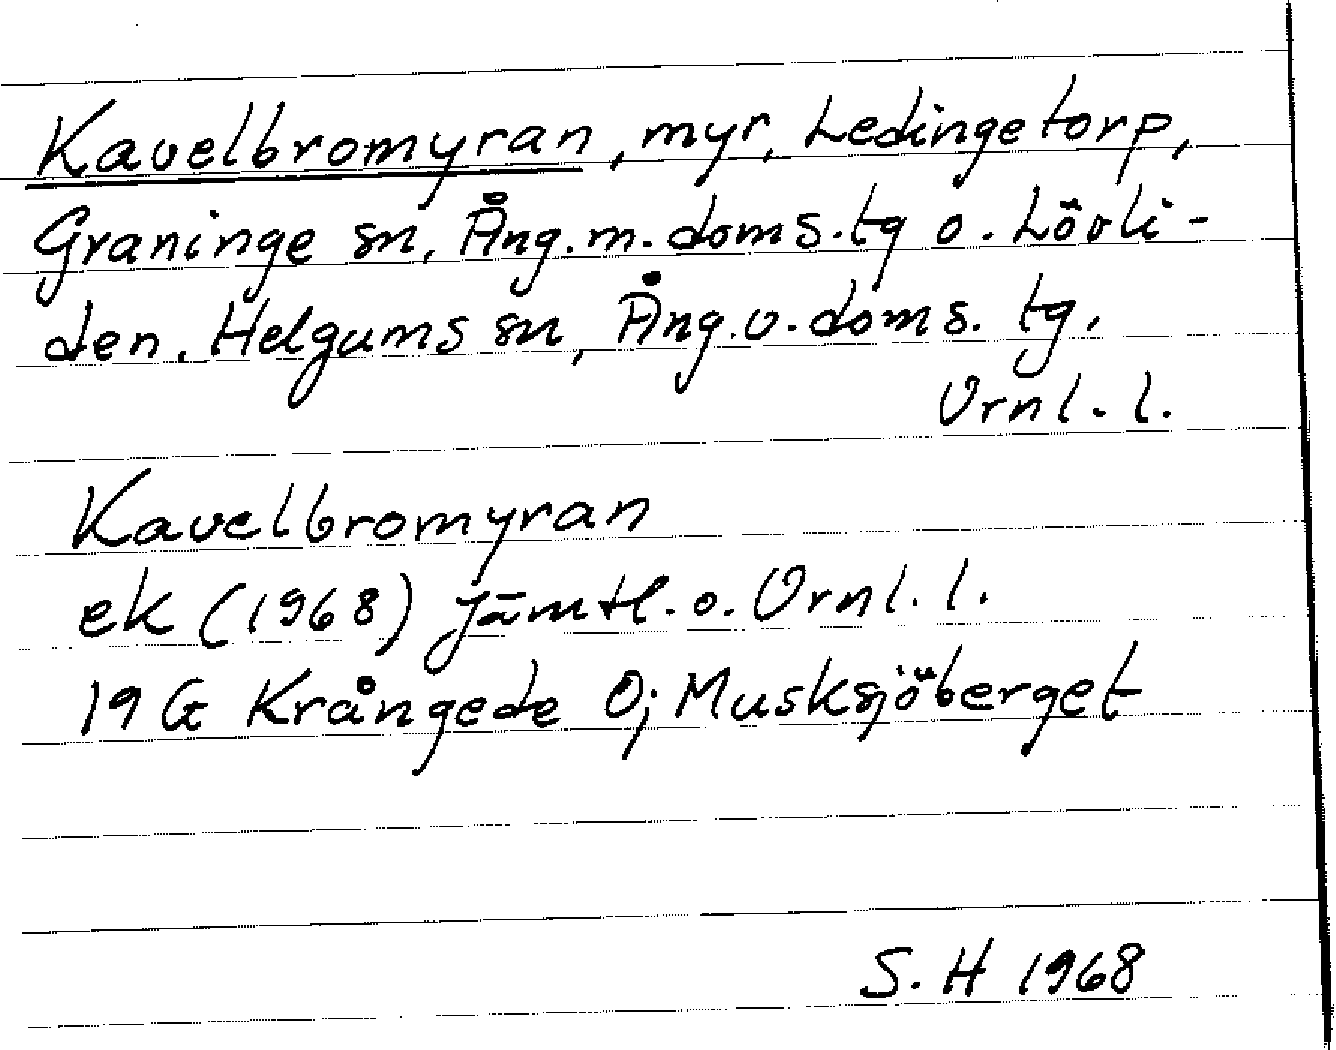 Kavelbromyran, myr, Ledingetorp,
Graninge sn, Ång.m.doms.tg o. Lövli-
den, Helgums sn, Ång.v.doms. tg,
Vrnl. l.
Kavelbromyran
ek (1968) Jämtl. o. Vrnl. l.
19 G Krångede O; Musksjöberget
S. H 1968